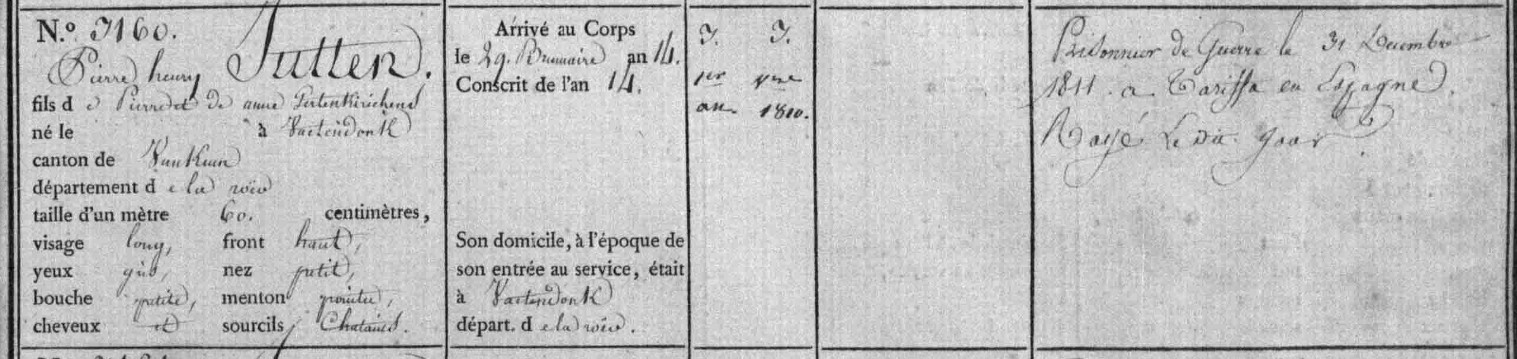 N.º 3160.
Pierre henry Jutten.
fils d e Pierre et de anne Gertenkirichens
né le à Vactendonk
canton de Vankum
département d e la roër
taille d'un mètre 60. centimètres,
visage long, front haut,
yeux gris, nez petit,
bouche petite, menton pointu,
cheveux et sourcils Chatains.
Arrivé au Corps
le 29. Brumaire an 14.
Conscrit de l'an 14.
Son domicile, à l'époque de
son entrée au service, était
à Vactendonk
départ. d e la roër.
3. 3.
1er
an 1810.
Prisonnier de Guerre le 31 Decembre
1811. a Tariffa en Espagne.
Rayé Le dit Jour